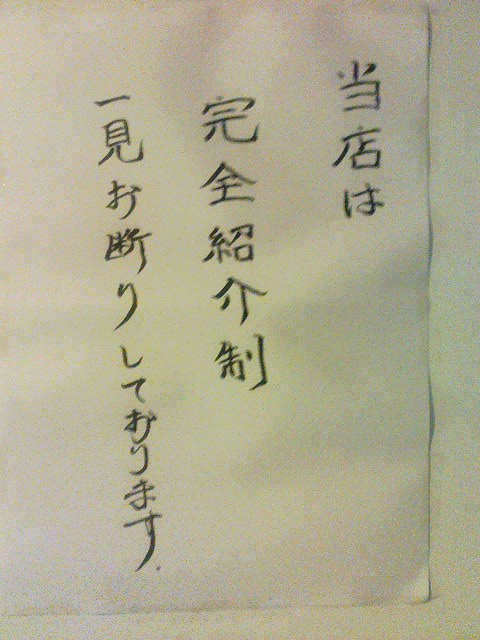 当店は
完全紹介制
一見お断りしております.